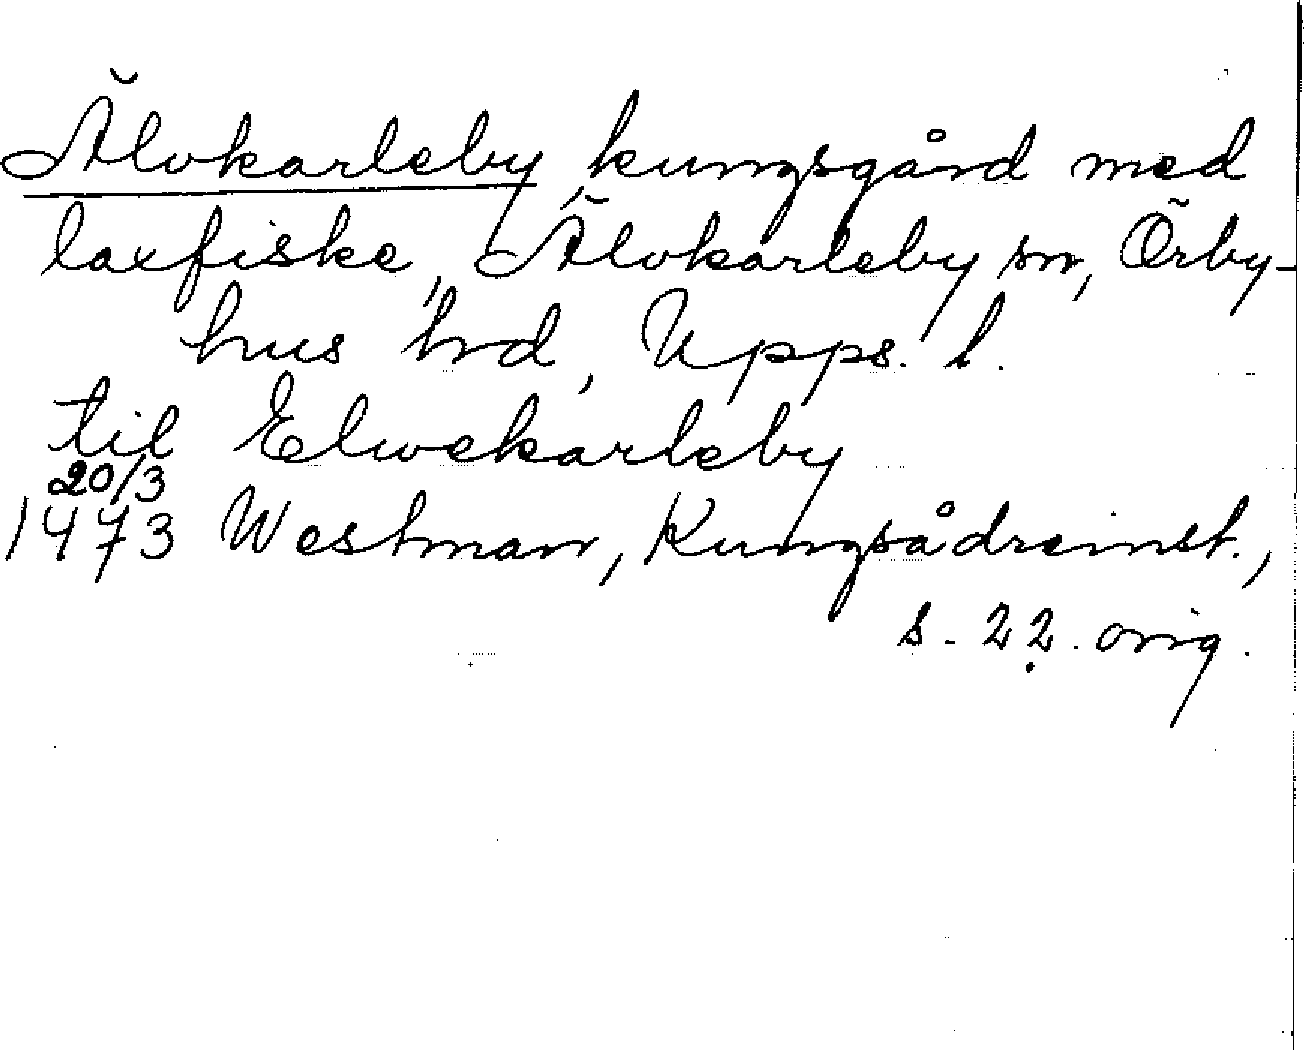 Älvkarleby, kungsgård med
laxfiske, Älvkarleby sn, Örby-
hus hrd, Upps. l.
til Elwekarleby
20/3
1473 Westman, Kungsådreinst.,
s. 22. orig.